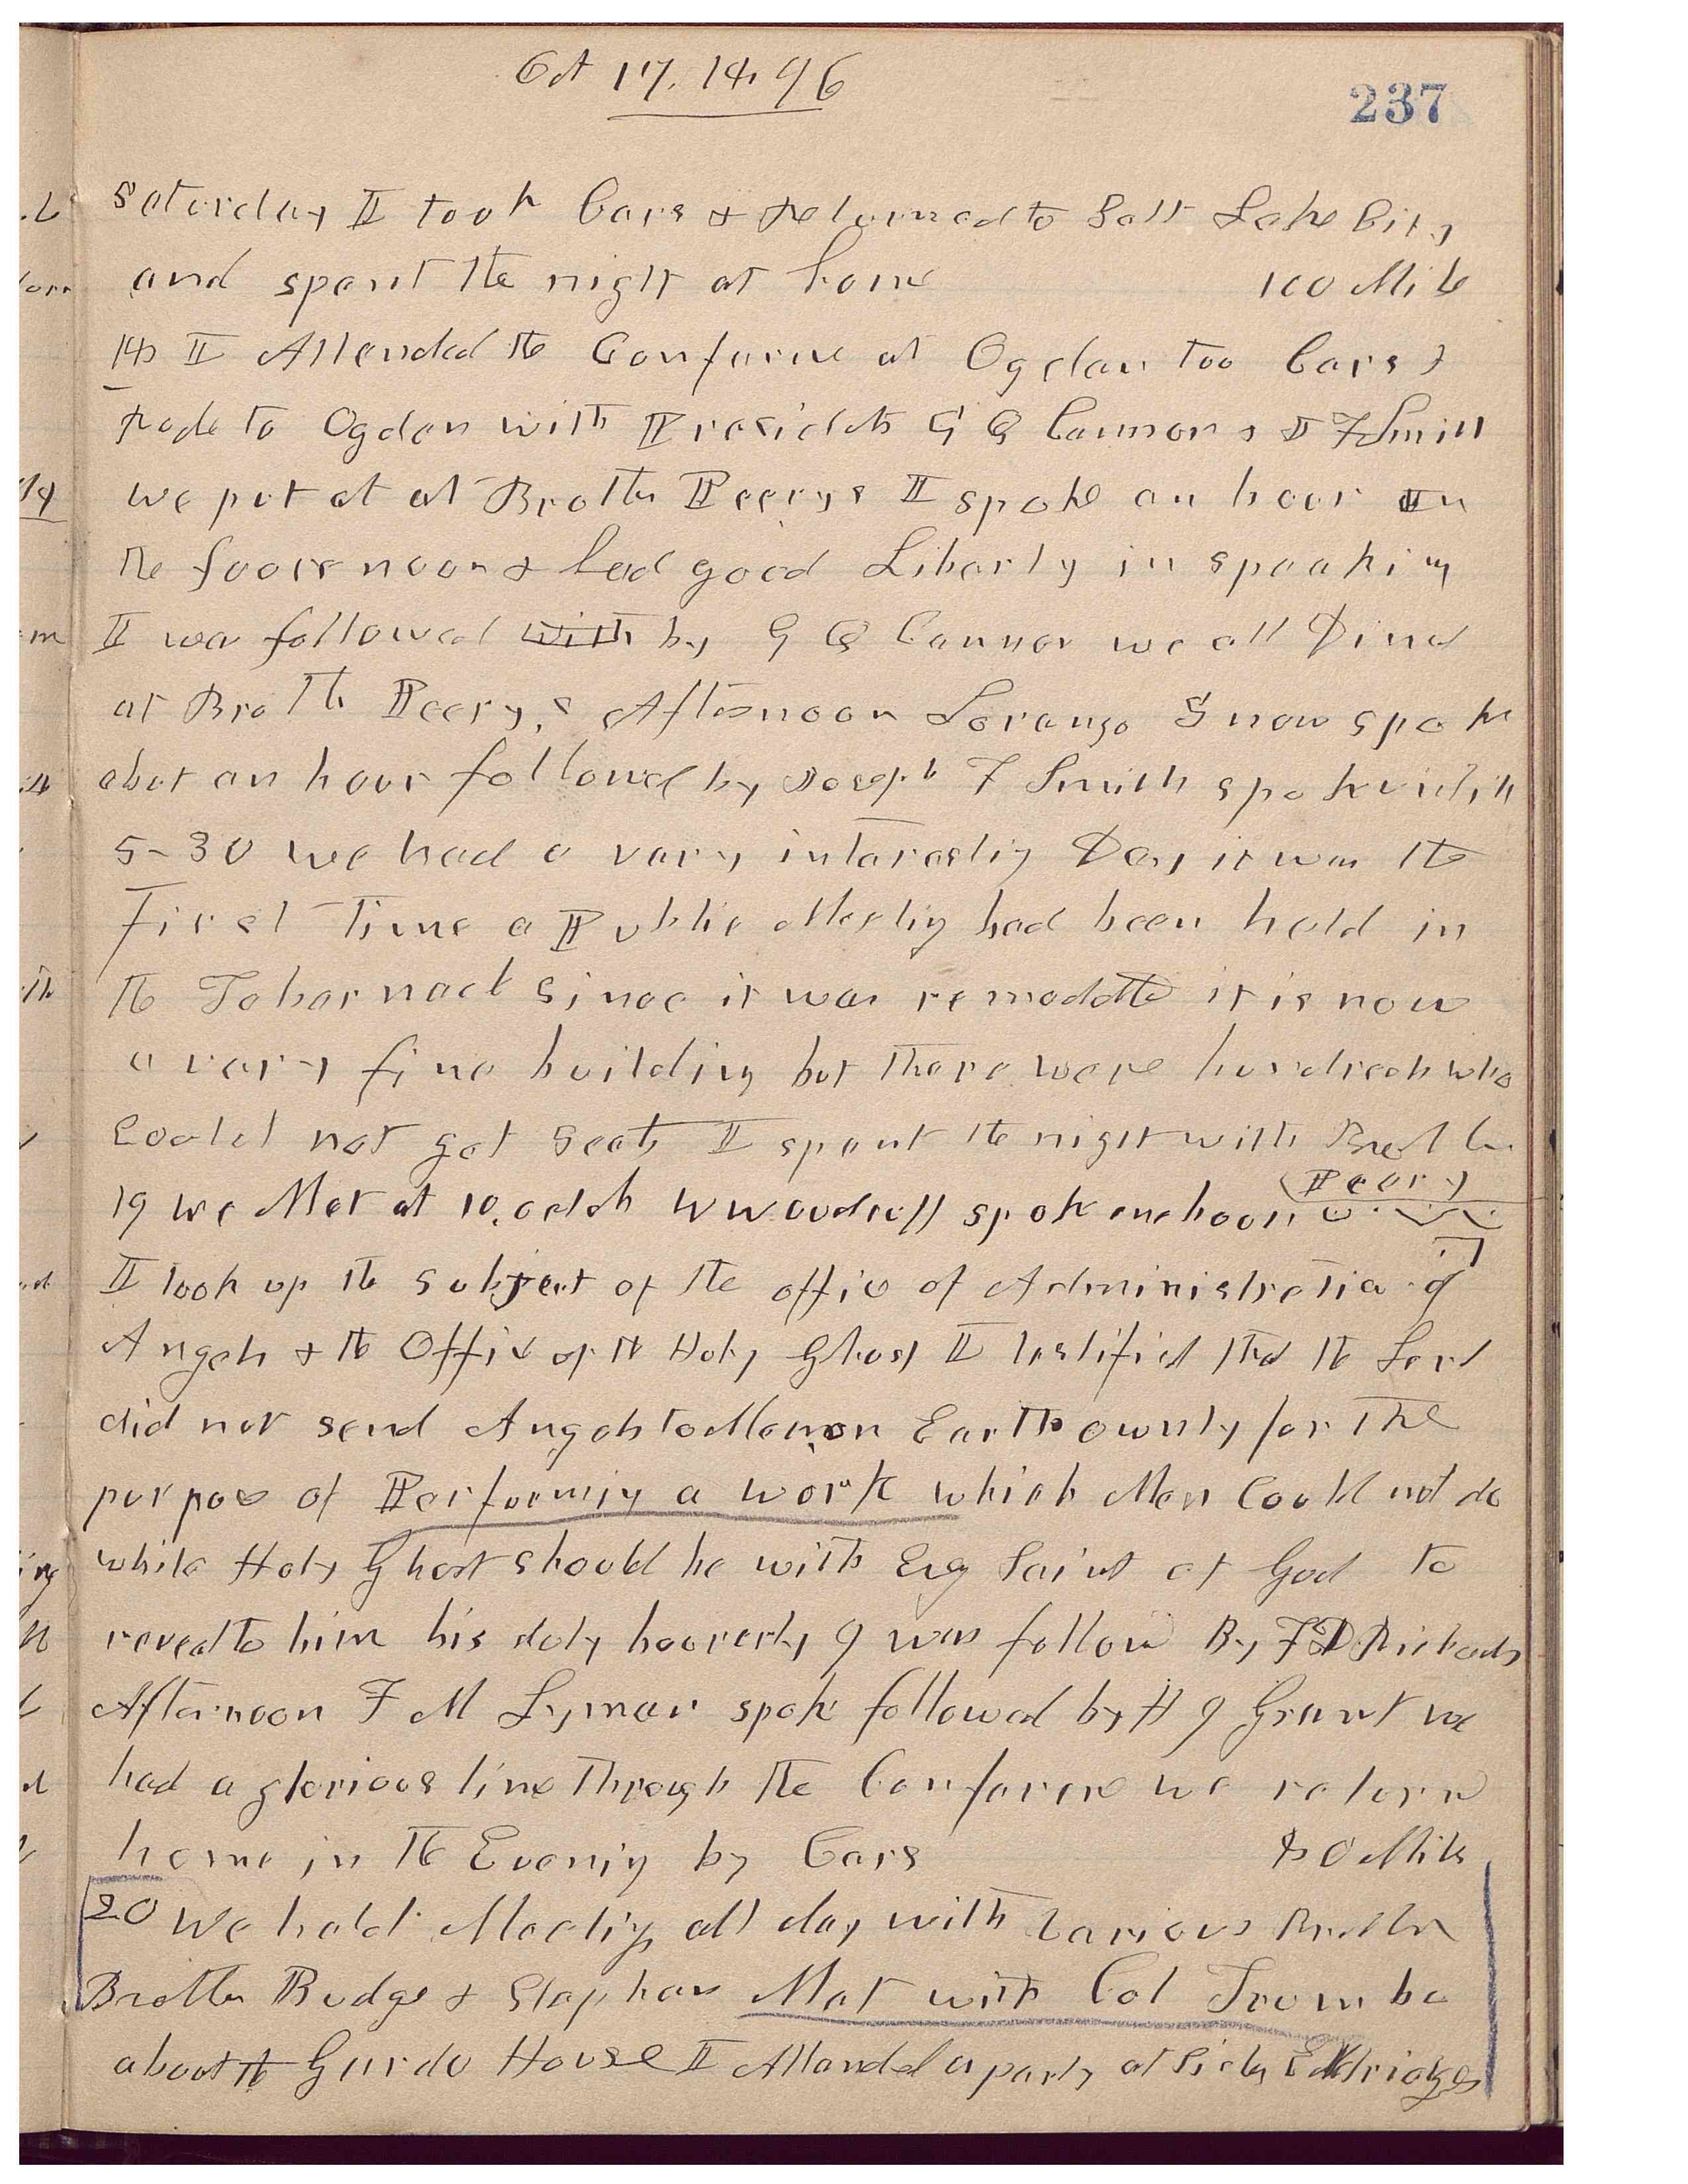 Oct 17, 1896
237
Saturday I took Cars & Returned to Salt Lake City
and spent the night at home 100 Mile
18 I Attended the Conferne at Ogden too Cars &
rode to Ogden with Presidets G Q Cannon & J F Smith
we put at at Brother Peerys I spoke an hour in
the foorenoon & had good Liberty in speaking
I was followed with by G Q Cannon we all Dined
at Brothr Peery's Afternoon Lorenzo Snow spoke
about an hour followed by Joseph F Smith spoke untill
5-30 we had a very interestig Day it was the
First Time a Public Meetig had been held in
the Tabernacle since it was remodeled it is now
a very fine building but there were hundreds who
Could not get Seats I spent the night with Brother
Peery
19 we Met at 10.oclok W Woodruff spoke one hour
I took up the subject of the office of Administration of
Angels & the Office of the Holy Ghost I testified that the Lord
did not send Angels to Men on Earth ownly for The
purpose of Performing a work which Men Could not do
while Holy Ghost should be with Evry Saint of God to
reveal to him his duty hoorerly I was follow By F D Richards
Afternoon F M Lyman spoke followed by H J Grant we
had a glorious time Through the Conference we return
home in the Evenig by Cars 80 Miles
20 We held Meetigs all day with Various Brothern
Brother Budge & Stephens Met with Col Trumbo
about the Gardo House I Attended a party at Sister Eldridges